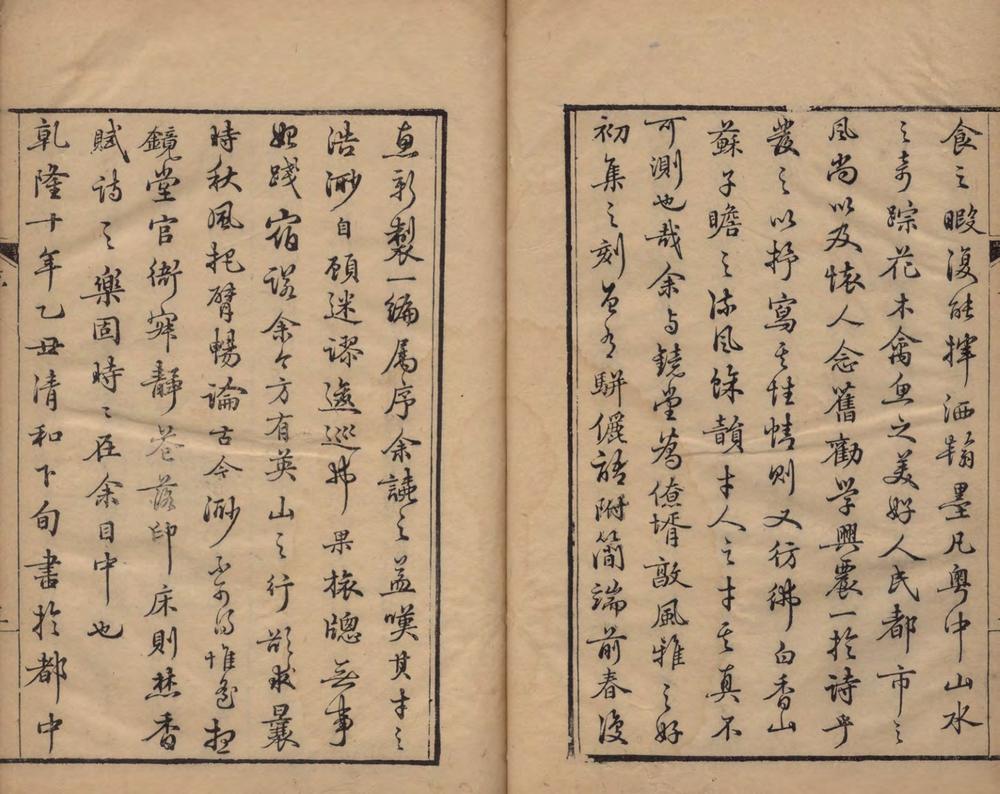 食之暇復能揮洒翰墨凡粵中山水
之奇踪花木禽魚之美好人民都市之
風尚以及懷人念舊勸学興農一於詩乎
發之以抒寫其性情則又彷彿白香山
蘇子瞻之流風餘韻才人之才其真不
可測也哉余与鏡堂為僚壻敦風雅之好
初集之刻曾有駢儷語附簡端前春復
惠新製一編属序余讀之益嘆其才之
浩渺自顧迷謬逡巡弗果旅牕無事
始踐宿諾余今方有英山之行欲求曩
時秋風把臂暢論古今渺不可得惟遙想
鏡堂官衙寂靜苔落印床則焚香
賦詩之樂固時〻在余目中也
乾隆十年乙丑清和下旬書於都中